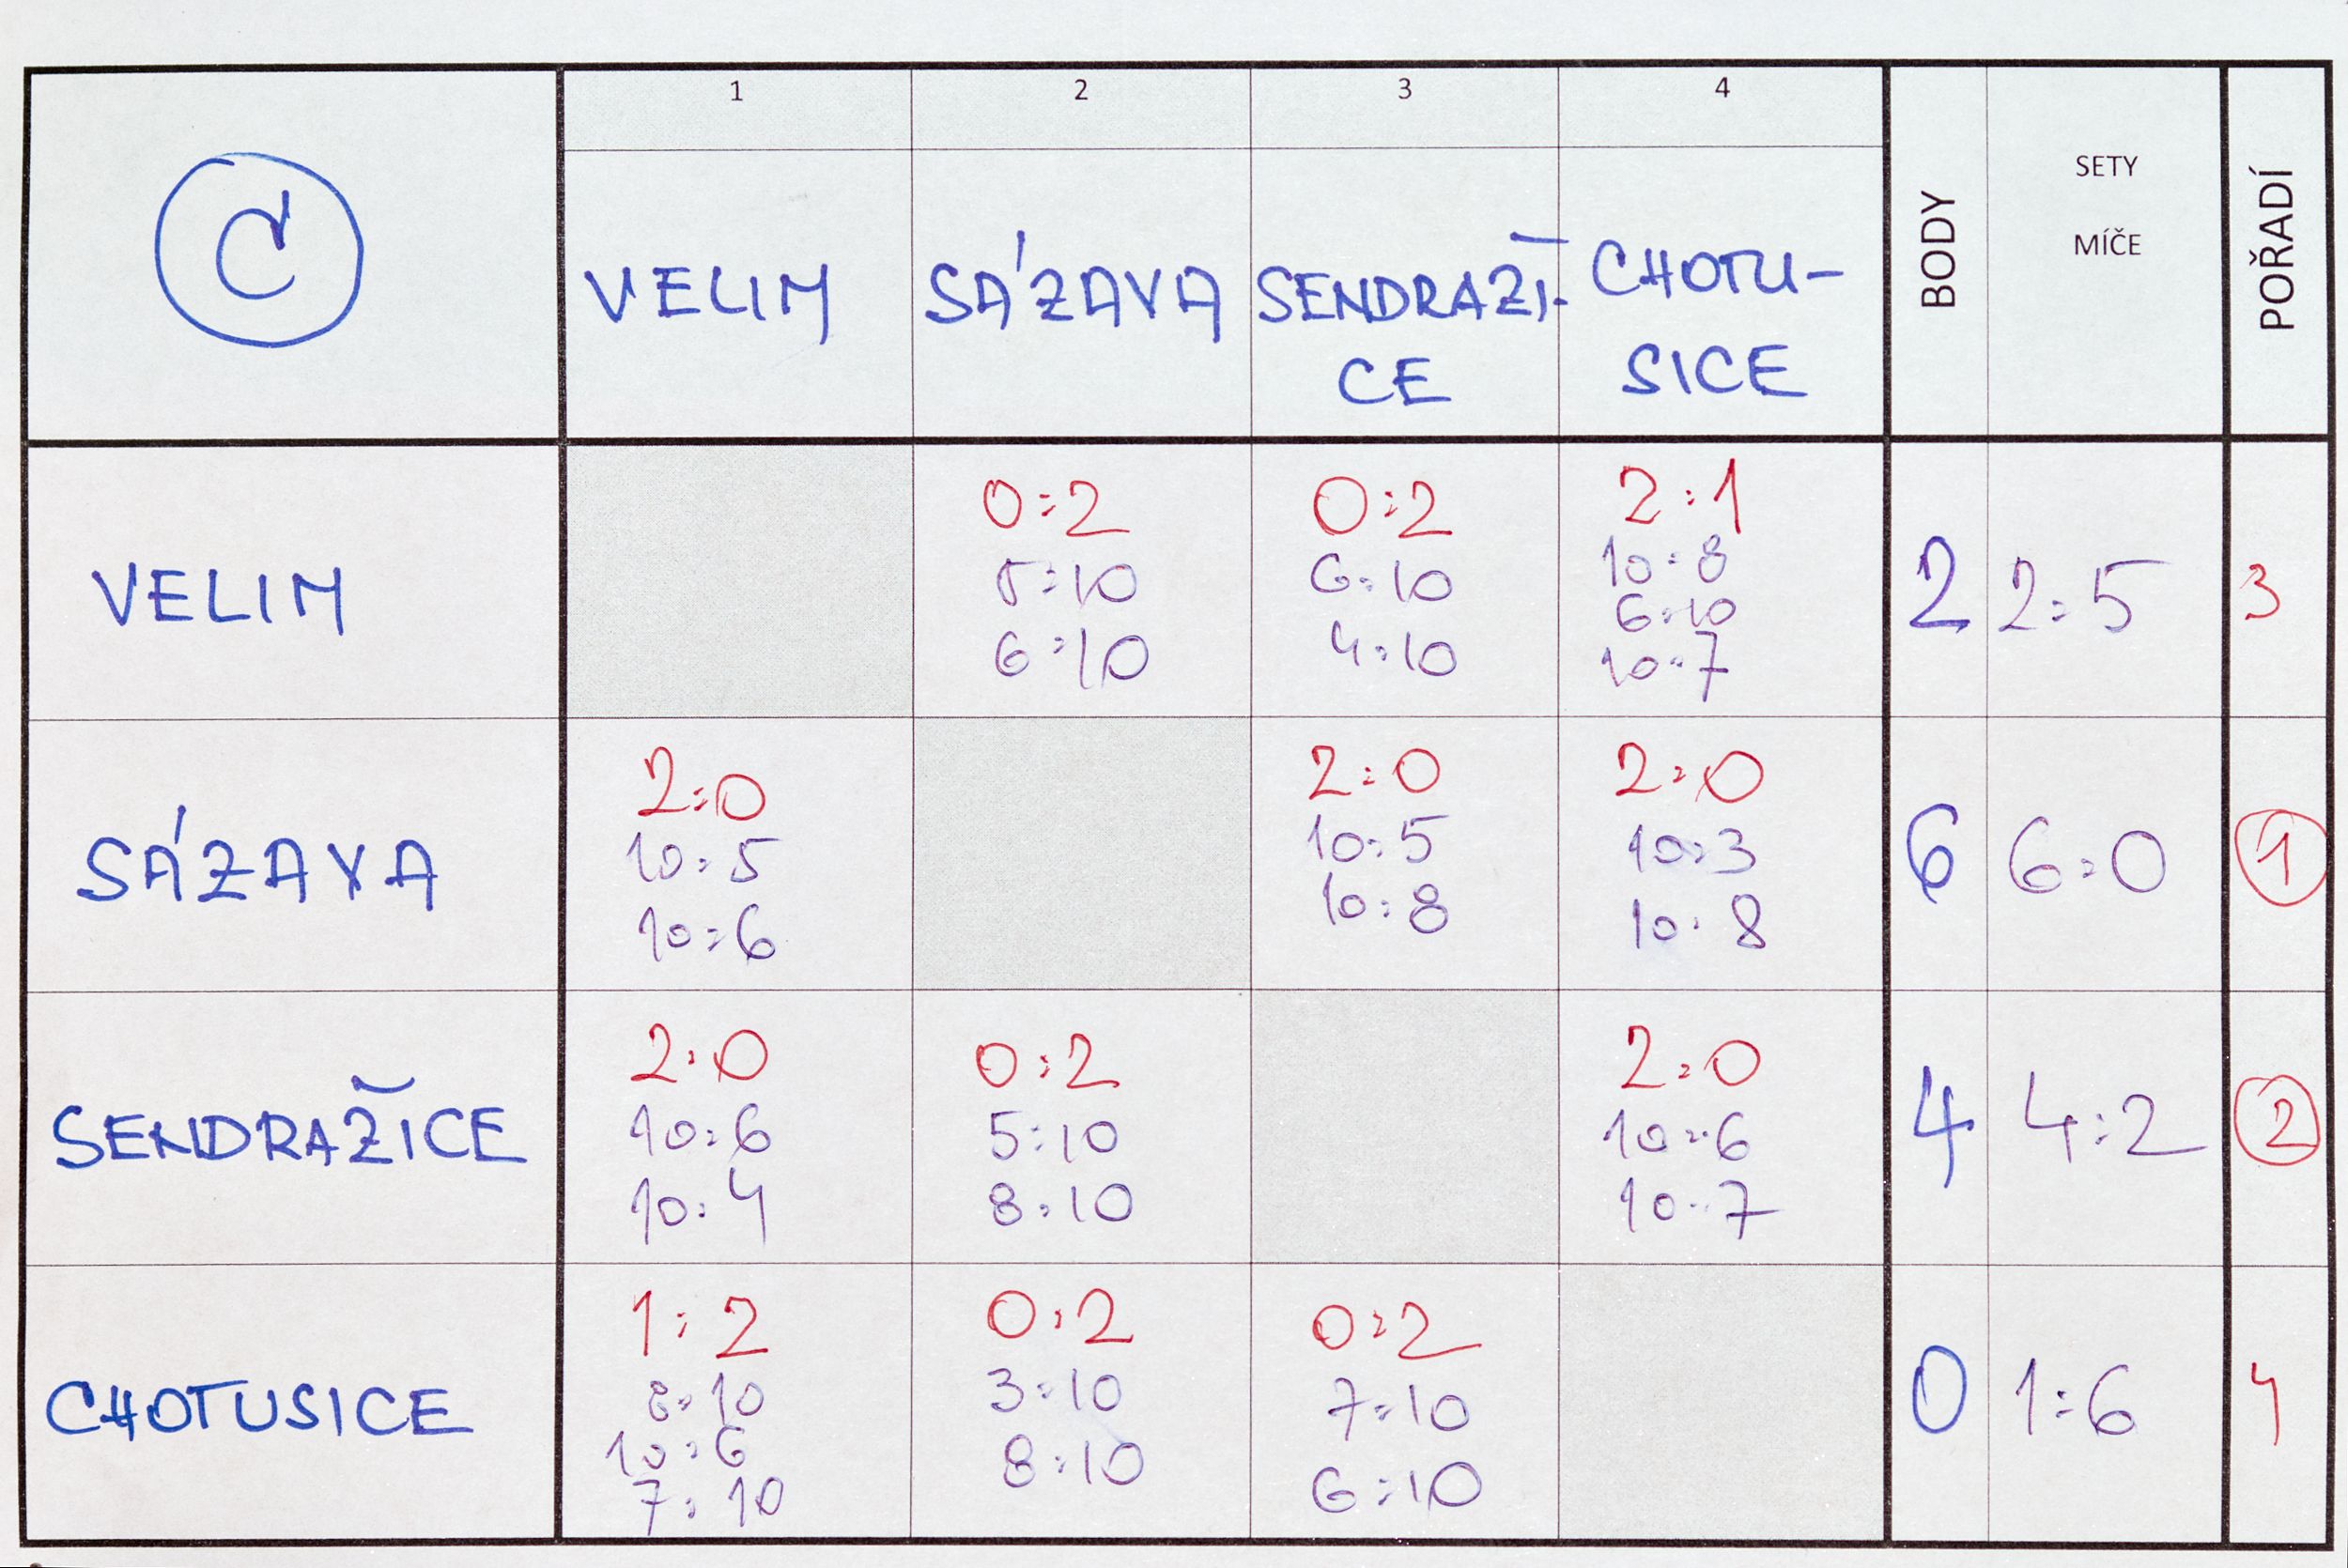 1 2 3 4
Č VELIM SÁZAVA SENDRAŽI- CHOTU- BODY SETY POŘADÍ
CE SICE MÍČE
VELIM 0:2 0:2 2:1 2 2:5 3
5:10 6:10 10:8
6:10 4:10 6:10
10:7
SÁZAVA 2:0 2:0 2:0 6 6:0 1
10:5 10:5 10:3
10:6 10:8 10:8
SENDRAŽICE 2:0 0:2 2:0 4 4:2 2
10:6 5:10 10:6
10:4 8:10 10:7
CHOTUSICE 1:2 0:2 0:2 0 1:6 4
8:10 3:10 7:10
10:6 8:10 6:10
7:10